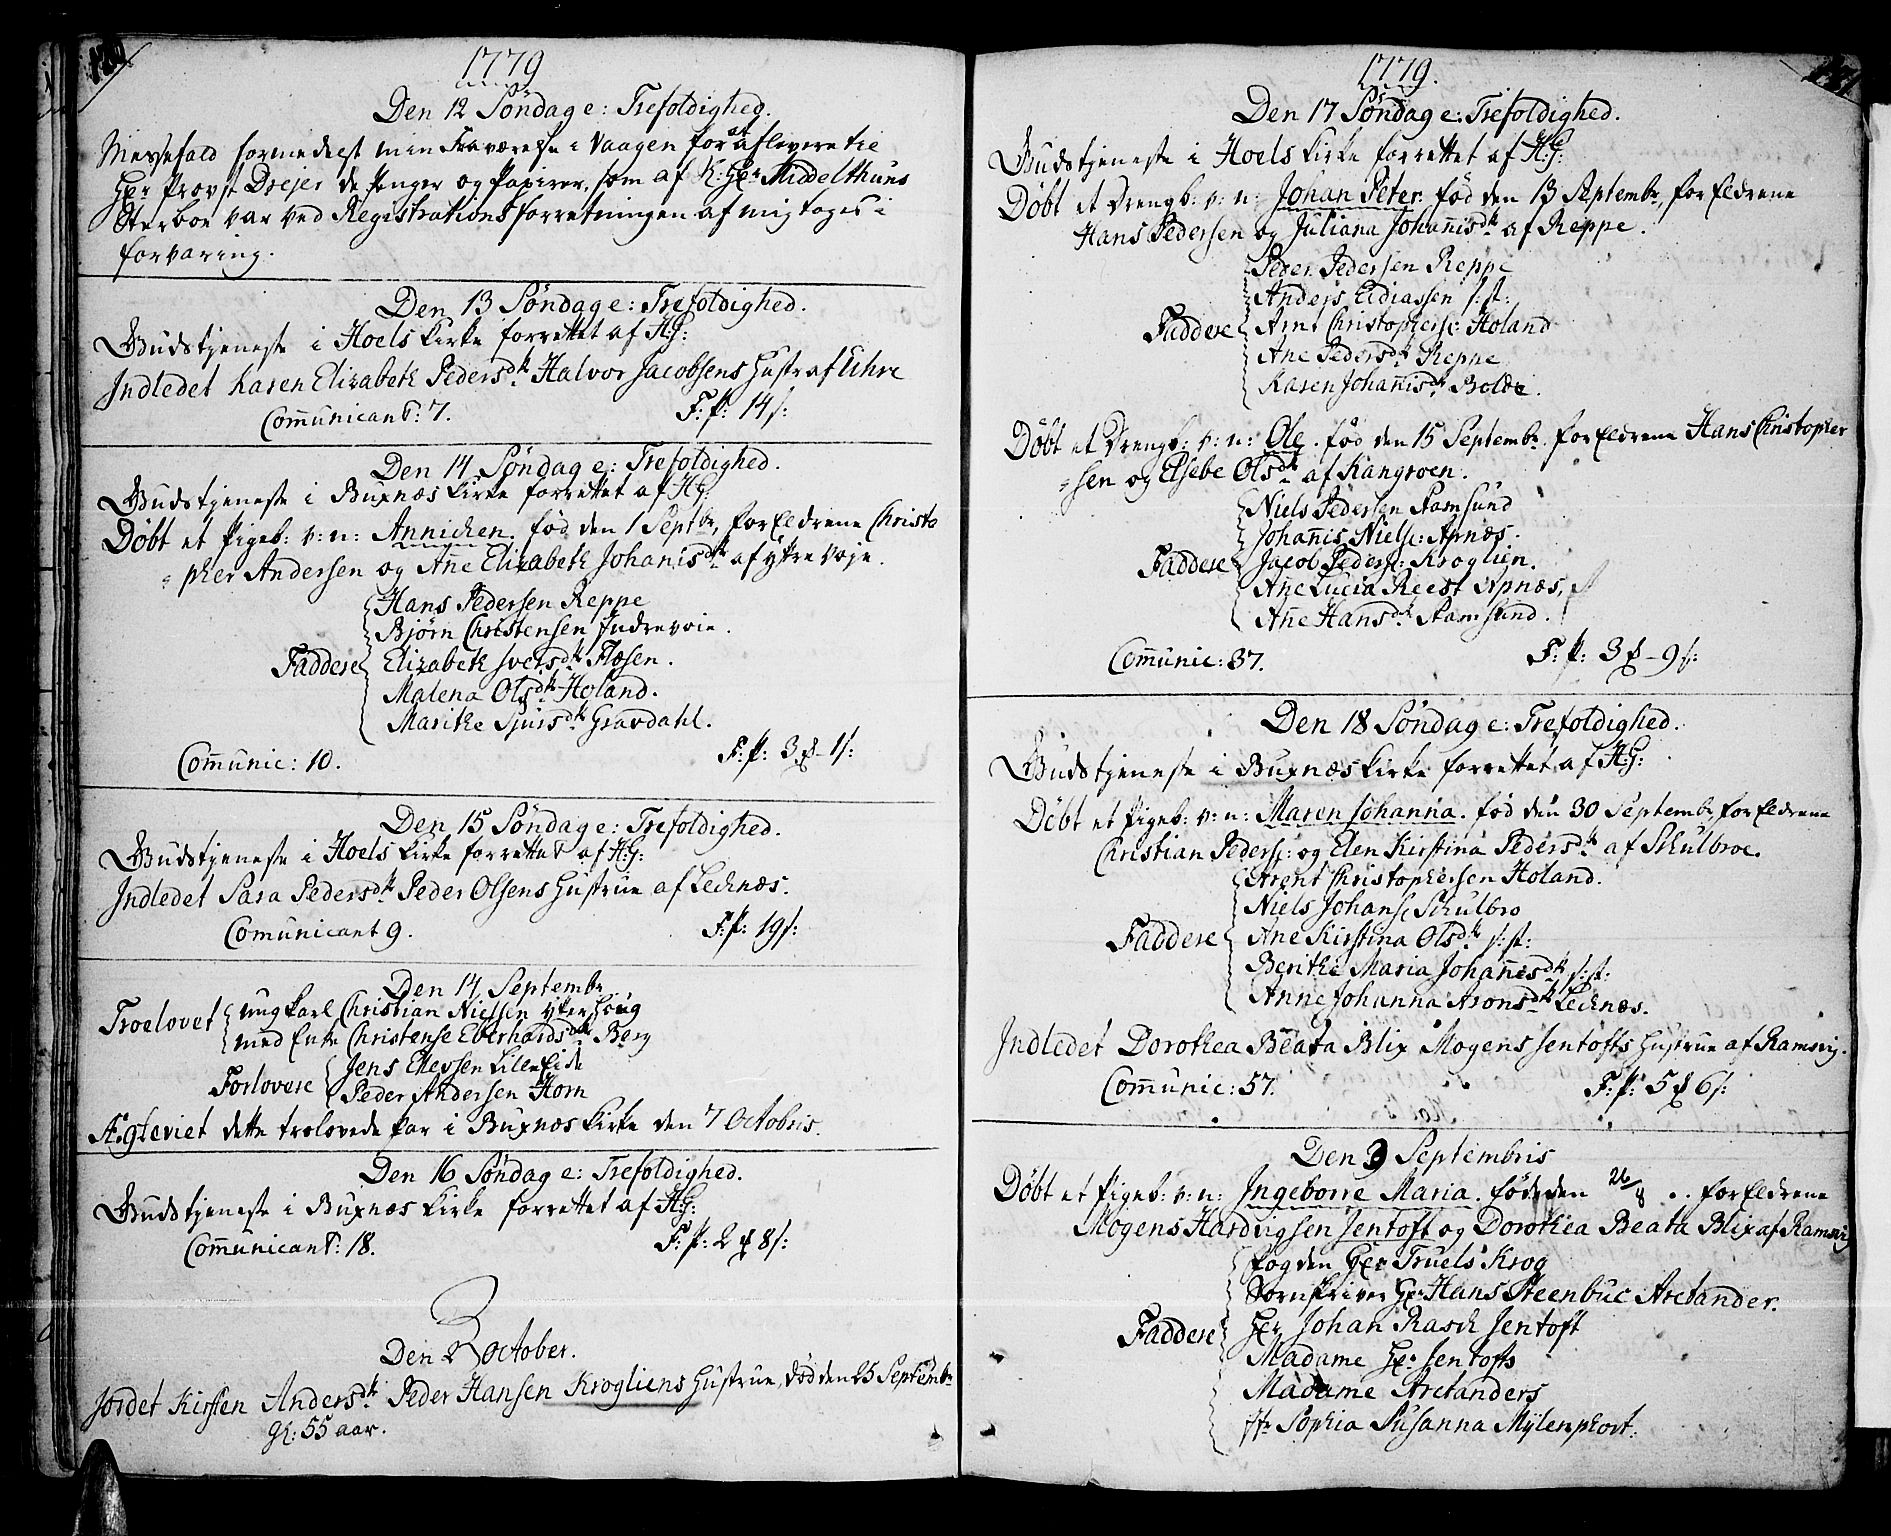 1779
Den 12 Søndag e: Trefoldighed.
Messefald formedelst min Fraværelse i Vaagen for at aflevere til
Hr Provst Drejer de Penger og Papirer, som af K: Hr Middelthuns
Sterboe var ved Registrations forretningen af mig tages i
forvaring.
Den 13 Søndag e: Trefoldighed.
Gudstjeneste i Hoels Kirke forrettet af H:G:
Indledet Karen Elizabeth Pedersdtr Halvor Jacobsens Hustr af Uhre
Com̄unicant: 7. F: P: 14 s:
Den 14 Søndag e: Trefoldighed.
Gudstjeneste i Buxnæs Kirke forrettet af H:G:
Døbt et Pigeb: v: n: Annichen. fød den 1 Septbr, Forældrene Christo
=pher Andersen og An̄e Elizabeth Johanisdtr af Ytre Voje.
Hans Pedersen Reppe
Bjørn Christensen Indrevoie.
Faddere Elizabeth Iversdtr Flæsen.
Malena Olsdtr Holand.
Marithe Sjursdtr Gravdahl.
Com̄unic: 10. F: P: 3 - 1 s:
Den 15 Søndag e: Trefoldighed.
Gudstjeneste i Hoels Kirke forrettet af H:G:
Indledet Sara Pedersdtr Peder Olsens Hustrue af Lecknæs.
Comunicant 9. F: P: 19 s:
Den 14 Septembr
Troelovet ungkarl Christian Nielsen Ytersoug
med Enke Christense Eberhardsdtr Berg
Forlovere Jens Ellessen Lille Eide
Peder Andersen Horn
Ægteviet dette trolovede par i Buxnæs Kirke den 7 Octobris.
Den 16 Søndag e: Trefoldighed.
Gudstjeneste i Buxnæs Kirke forrettet af H:G:
Com̄unicant: 18. F: P: 2 8 s:
Den 2 October.
Jordet Kirsten Andersdtr Peder Hansen Krogliens Hustrue, død den 25 Septembr
gl: 55 aar.
1779.
Den 17 Søndag e: Trefoldighed.
Gudstjeneste i Hoels Kirke forrettet af H:G:
Døbt et Drengb: v: n: Johan Peter. fød den 13 Septembr, Forældrene
Hans Pedersen og Juliana Johan̄isdtr af Reppe.
Peder Pedersen Reppe
Anders Eliassen s: st:
Faddere Arnt Christophers: Holand
Ane Pedersdtr Reppe
Karen Johan̄isdtr Bolde.
Døbt et Drengb: v: n: Ole. fød den 15 Septembr. Forældrene Hans Christopher
=sen og Elsebe Olsdtr af Kangroen.
Niels Pedersen Stamsund
Johan̄is Niels: Apnæs.
Faddere Jacob Peders: Kroglien.
An̄e Lucia Reest Apnæs,
An̄e Hansdtr Stamsund.
Com̄unic: 37. F: P: 3 - 9 s:
Den 18 Søndag e: Trefoldighed.
Gudstjeneste i Buxnæs Kirke forrettet af H:G:
Døbt et Pigeb: v: n: Maren Johanna. fød den 30 Septembr, Forældrene
Christian Peders: og Elen Kirstina Pedersdtr af Schulbroe.
Arent Christophersen Holand.
Niels Johans: Schulbro
Faddere Ane Kirstina Olsdtr s: st:
Berithe Maria Johan̄esdtr s: st:
Anne Johanna Aronsdtr Lecknæs.
Indledet Dorothea Beata Blix Mogens Jentofts Hustrue af Ramsvig.
Com̄unic: 57. F: P: 5 6 s:
Den 3 Septembris
Døbt et Pigeb: v: n: Ingeborre Maria. fød den 26/8 . . Forældrene
Mogens Hardvigsen Jentoft og Dorothea Beata Blix af Ramsvig
Fogden Hr Truels Krog
Sornskriver Hr Hans Steenbuc Arctander.
Faddere Hr Johan Rasch Jentoft
Madame Hr Jentofts
Madame Arctanders
Jfr Sophia Susanna Mylenphort.